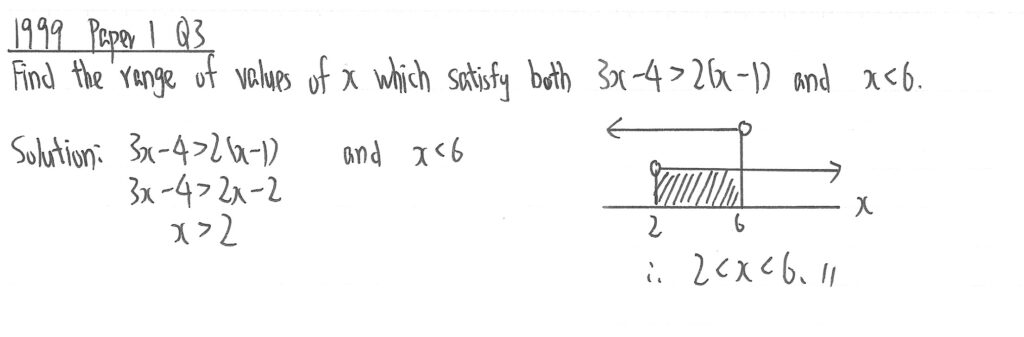 1999 Paper 1 Q3
Find the range of values of x which satisfy both 3x-4>2(x-1) and x<6.
Solution: 3x-4>2(x-1) and x<6
3x-4>2x-2
x>2
x
2 6
∴ 2<x<6. //